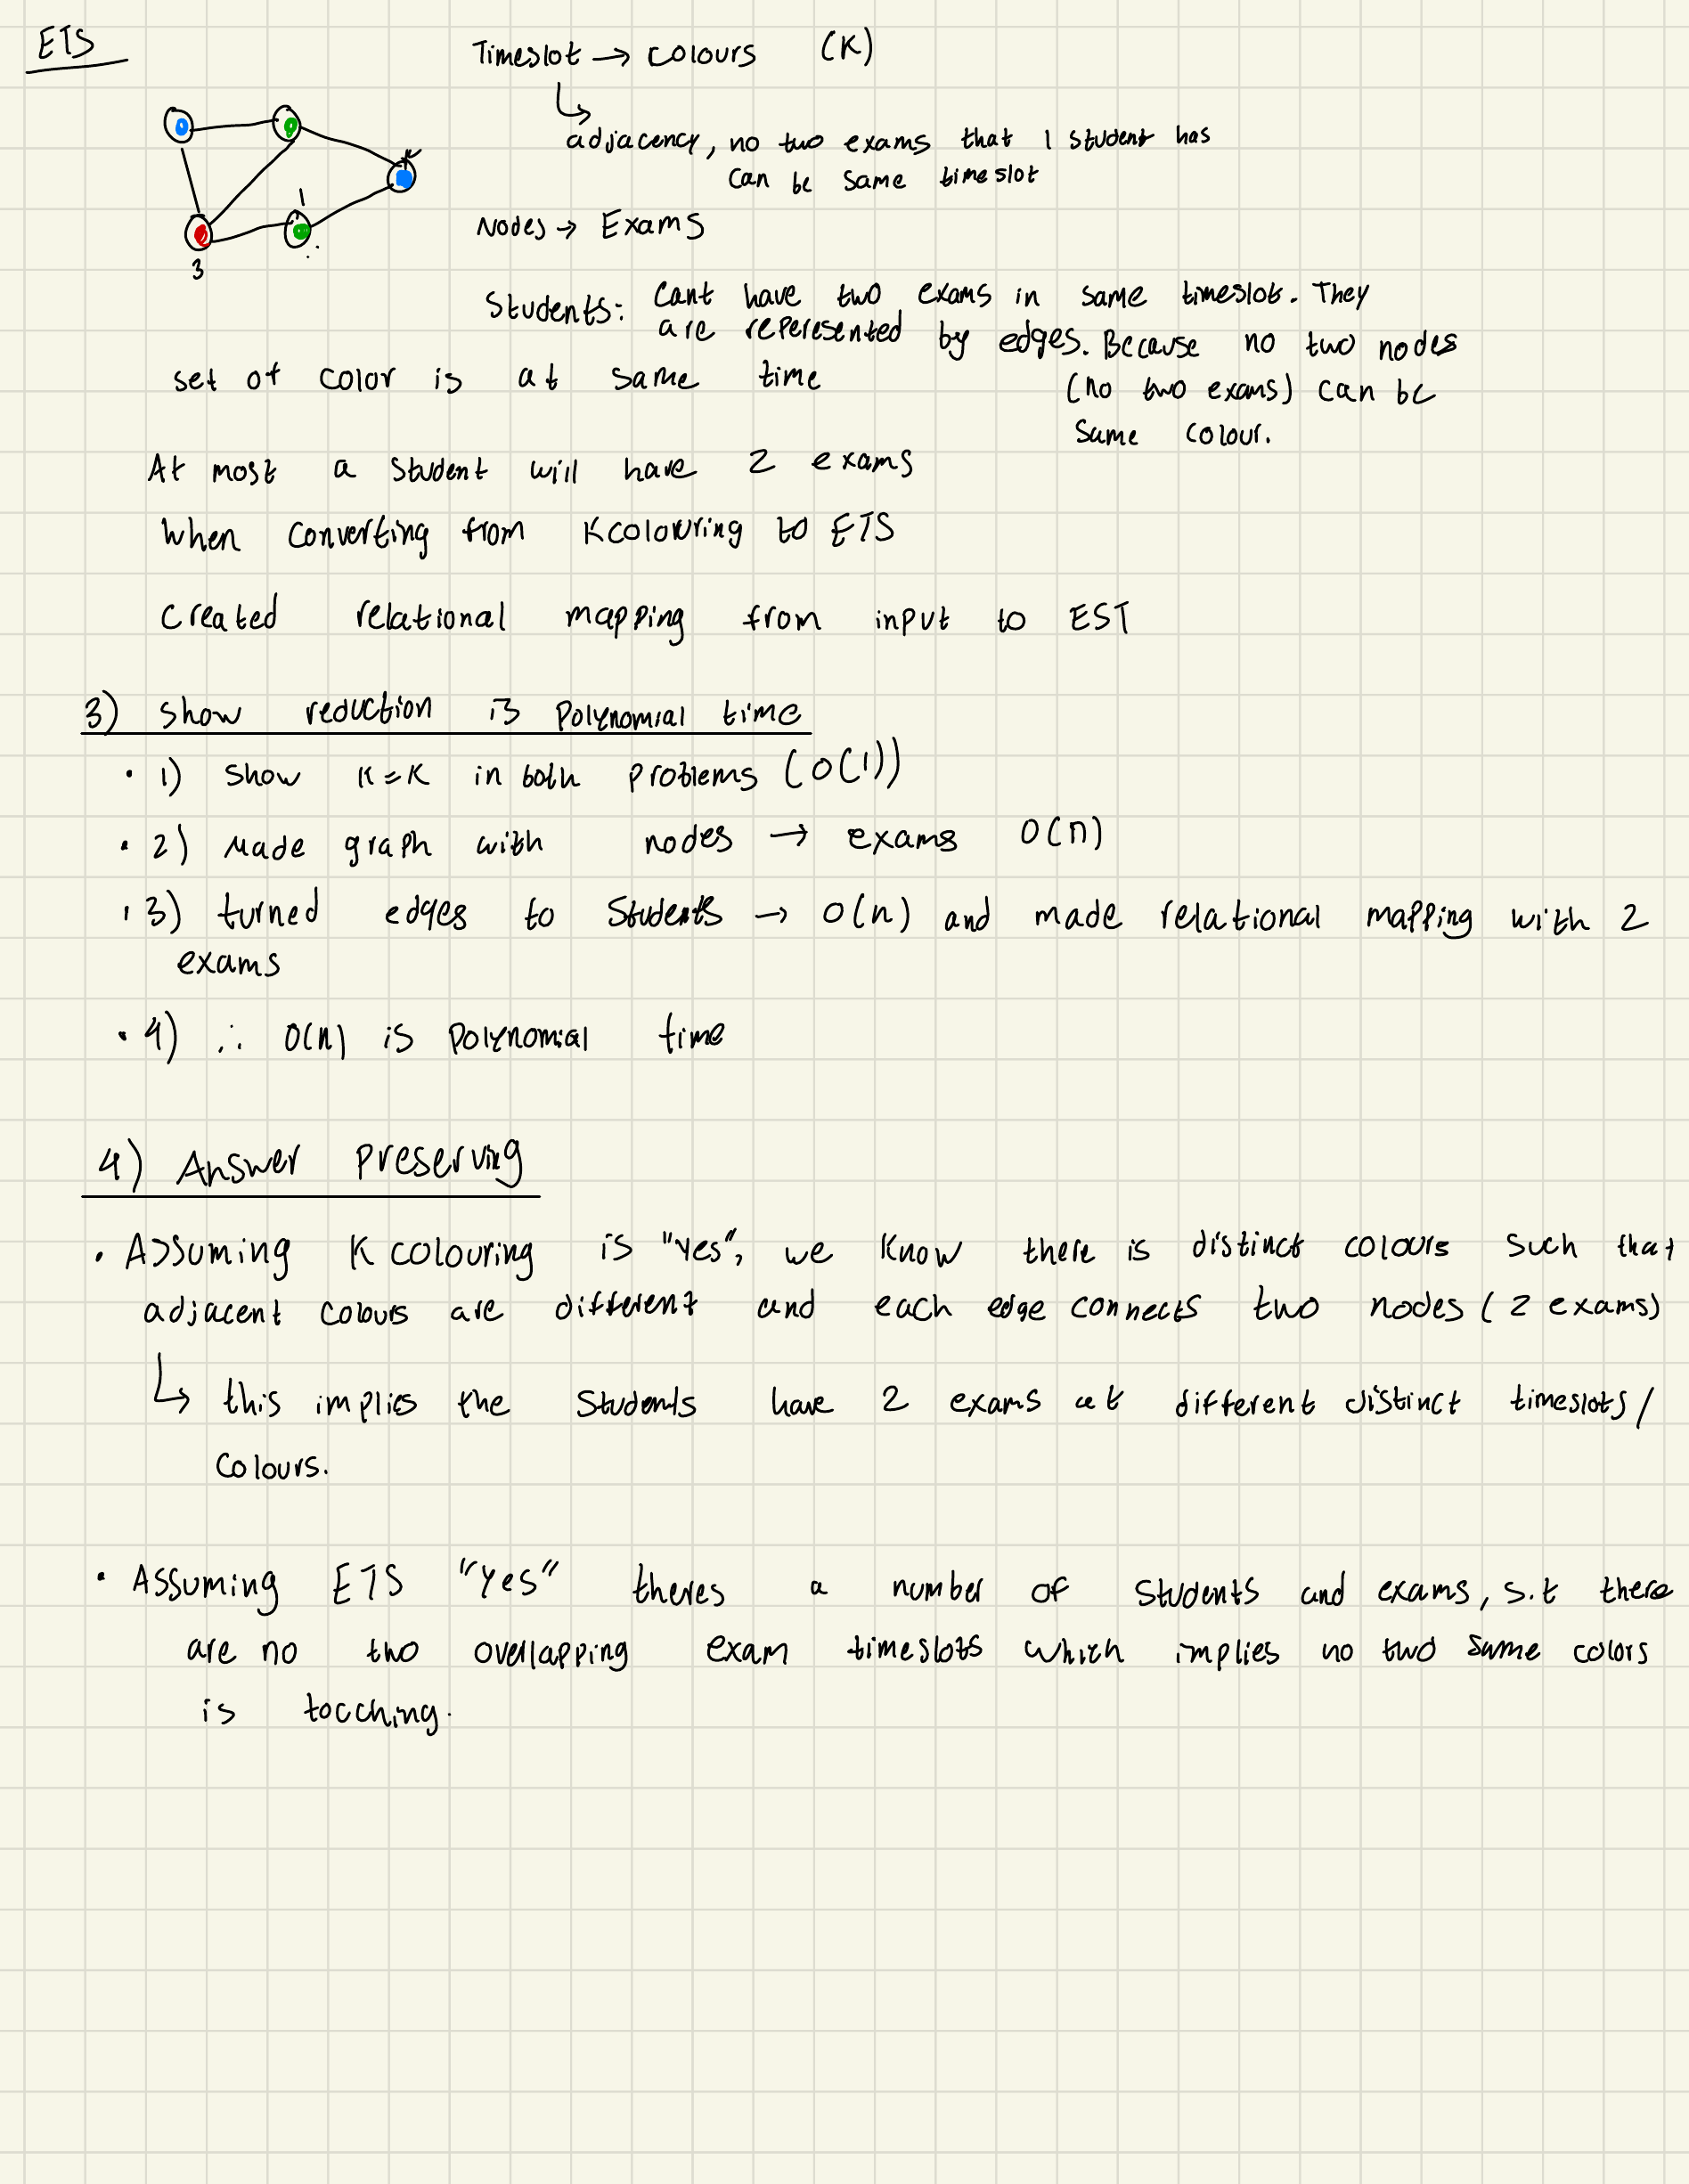 ETS
Timeslot → colours (K)
↳ adjacency, no two exams that 1 student has
can be same timeslot
1
3
Nodes → Exams
Students: Cant have two exams in same timeslot. They
are reperesented by edges. Because no two nodes
(no two exams) can be
same colour.
set of color is at same time
At most a student will have 2 exams
when converting from K colouring to ETS
Created relational mapping from input to EST
3) Show reduction is polynomial time
• 1) Show K=K in both problems (O(1))
• 2) Made graph with nodes → exams O(n)
• 3) turned edges to Students → O(n) and made relational mapping with 2
exams
• 4) ∴ O(n) is polynomial time
4) Answer preserving
• Assuming K colouring is "yes", we know there is distinct colours such that
adjacent colours are different and each edge connects two nodes (2 exams)
↳ this implies the students have 2 exams at different distinct timeslots/
colours.
• Assuming ETS "Yes" theres a number of students and exams, s.t there
are no two overlapping exam timeslots which implies no two same colors
is tocching.